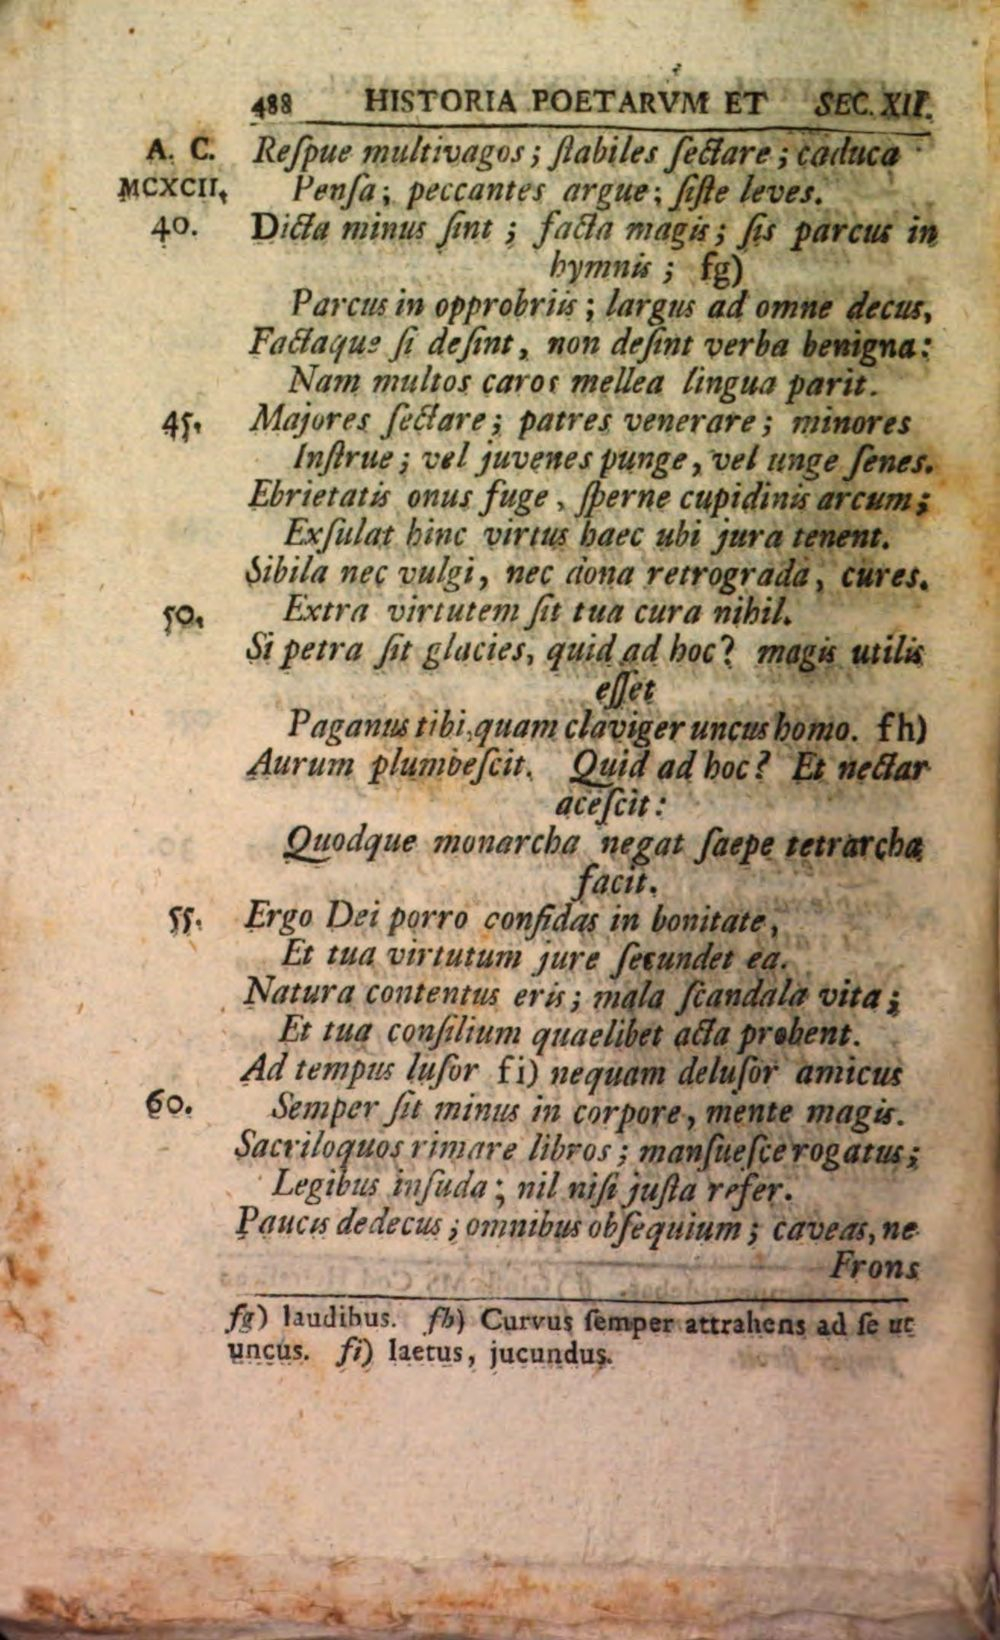 488 HISTORIA POETARVM ET SEC. XII.
A. C. Reſpue multivagos; ſtabiles ſectare; caduca
MCXCII. Penſa; peccantes argue; ſiſte leves.
40. Dicta minus ſint; facta magis; ſis parcus in
hymnis; fg)
Parcus in opprobriis; largus ad omne decus,
Factaque ſi deſint, non deſint verba benigna:
Nam multos caros mellea lingua parit.
45. Majores ſectare; patres venerare; minores
Inſtrue; vel juvenes punge, vel unge ſenes.
Ebrietatis onus fuge, ſperne cupidinis arcum;
Exſulat hinc virtus haec ubi jura tenent.
Sibila nec vulgi, nec dona retrograda, cures.
50. Extra virtutem ſit tua cura nihil.
Si petra ſit glacies, quid ad hoc? magis utilis
eſſet
Paganus tibi, quam claviger uncus homo. fh)
Aurum plumbeſcit. Quid ad hoc? Et nectar
aceſcit:
Quodque monarcha negat ſaepe tetrarcha
facit.
55. Ergo Dei porro confidas in bonitate,
Et tua virtutum jure ſecundet ea.
Natura contentus eris; mala ſcandala vita;
Et tua conſilium quaelibet acta probent.
Ad tempus luſor fi) nequam deluſor amicus
60. Semper ſit minus in corpore, mente magis.
Sacriloquos rimare libros; manſueſce rogatus;
Legibus inſuda; nil niſi juſta refer.
Paucis dedecus; omnibus obſequium; caveas, ne
Frons
fg) laudibus. fh) Curvus ſemper attrahens ad ſe ut
uncus. fi) laetus, jucundus.